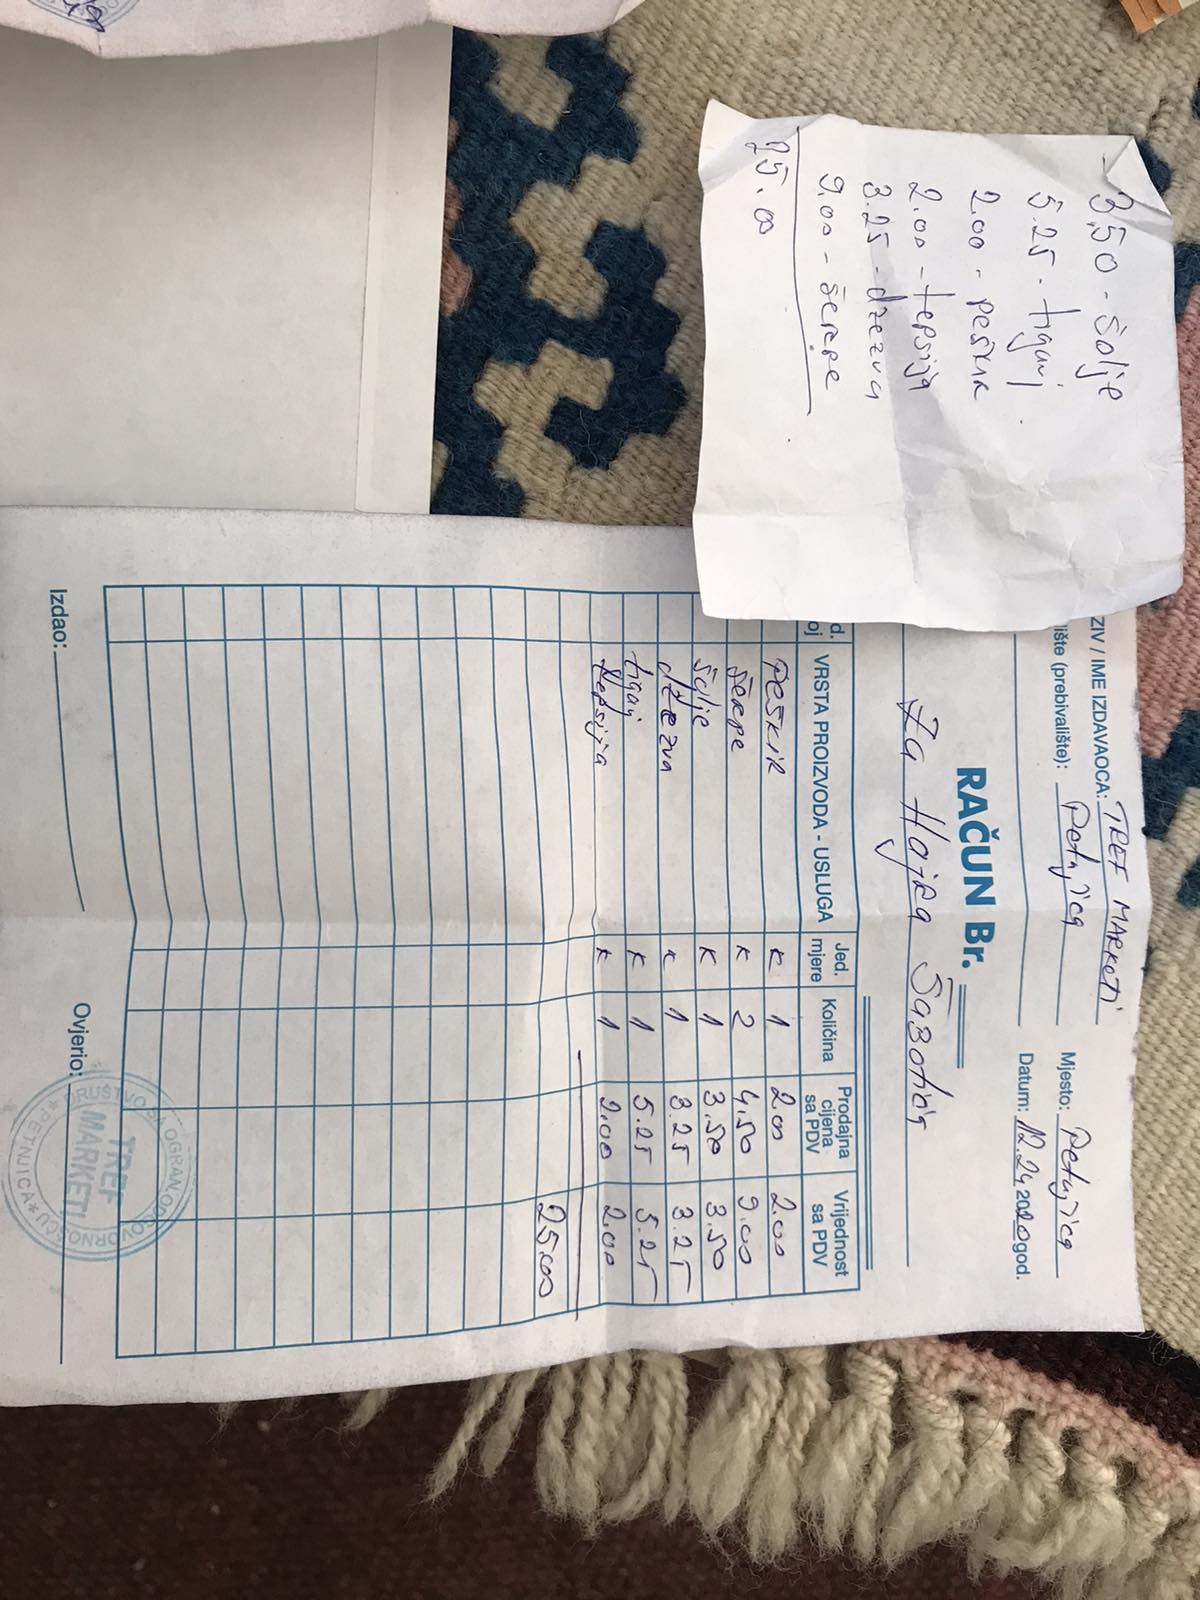 3,50 - šolje
5.25 - tiganj
2.00 - peškir
2.00 - tepsija
3.25 - džezva
9.00 - šerpe
25.00
ZIV / IME IZDAVAOCA: TREF MARKETI
ište (prebivalište): Petnjica
Mjesto: Petnjica
Datum: 12.24 2020 god.
RAČUN Br.
Za Hajra Šabotića
d. oj VRSTA PROIZVODA - USLUGA Jed. mjere Količina Prodajna cijena sa PDV Vrijednost sa PDV
peškir K 1 2.00 2.00
šerpe K 2 4.50 9.00
šolje K 1 3.50 3.50
džezva K 1 3.25 3.25
tiganj K 1 5.25 5.25
tepsija K 1 2.00 2.00
25.00
Izdao:
Ovjerio:
DRUŠTVO SA OGRAN.ODGOVORNOŠĆU * PETNJICA *
TREF
MARKETI